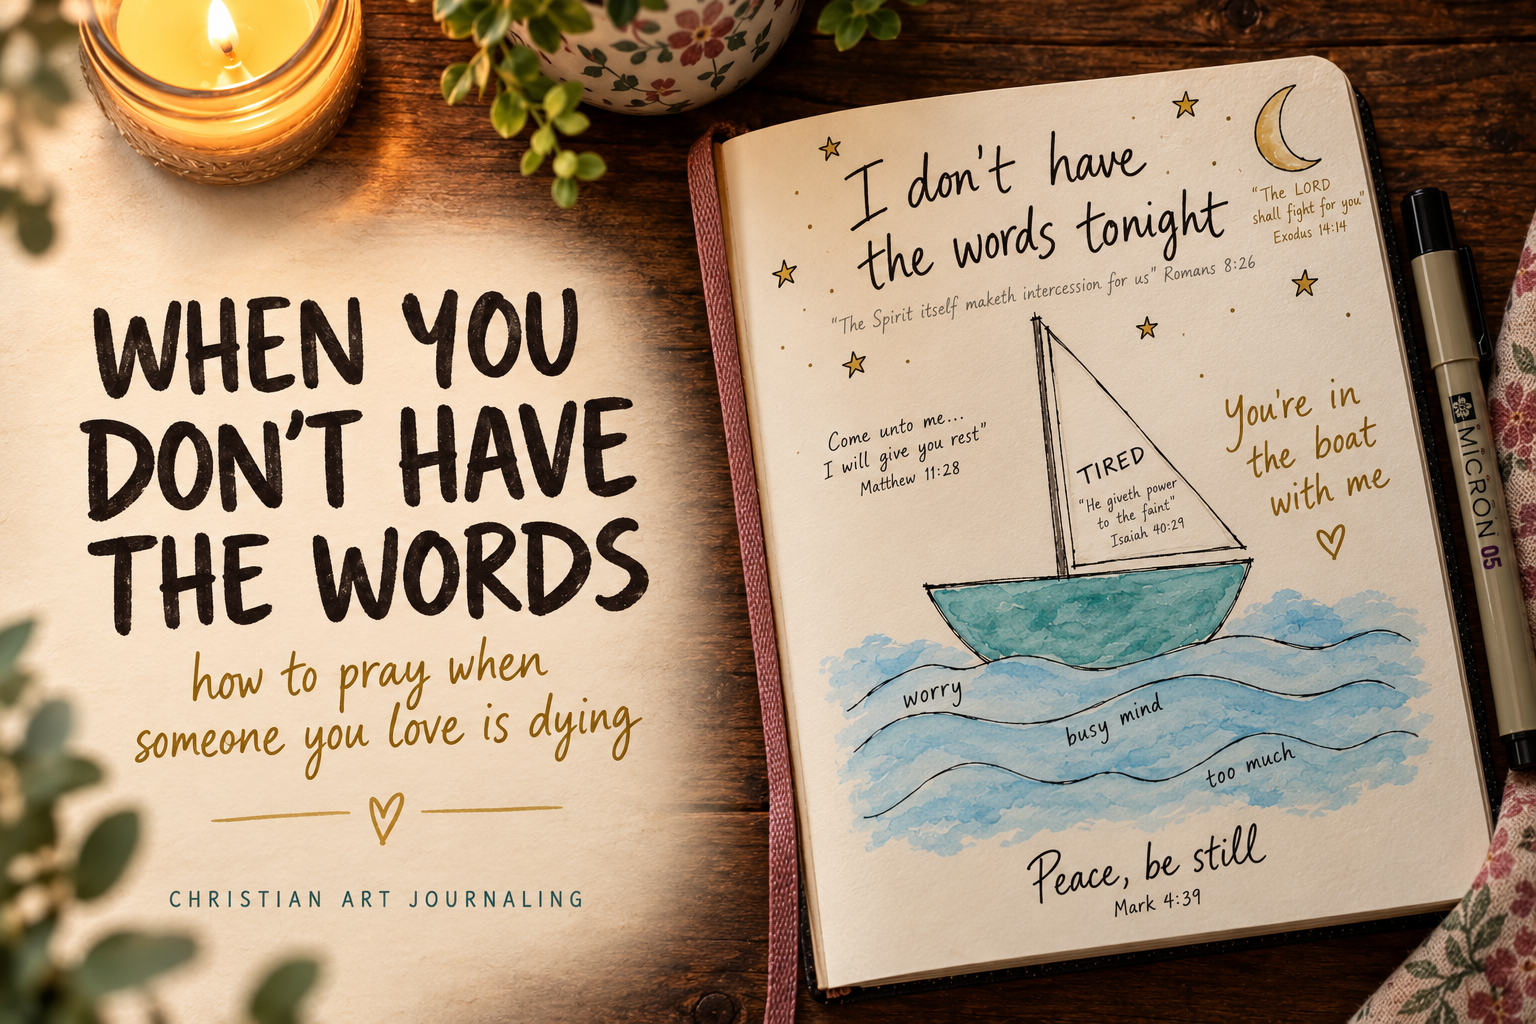 WHEN YOU
DON'T HAVE
THE WORDS
how to pray when
someone you love is dying
CHRISTIAN ART JOURNALING
I don't have
the words tonight
"The Spirit itself maketh intercession for us" Romans 8:26
"The LORD
shall fight for you"
Exodus 14:14
Come unto me...
I will give you rest"
Matthew 11:28
TIRED
"He giveth power
to the faint"
Isaiah 40:29
You're in
the boat
with me
worry
busy mind
too much
Peace, be still
Mark 4:39
MICRON 05